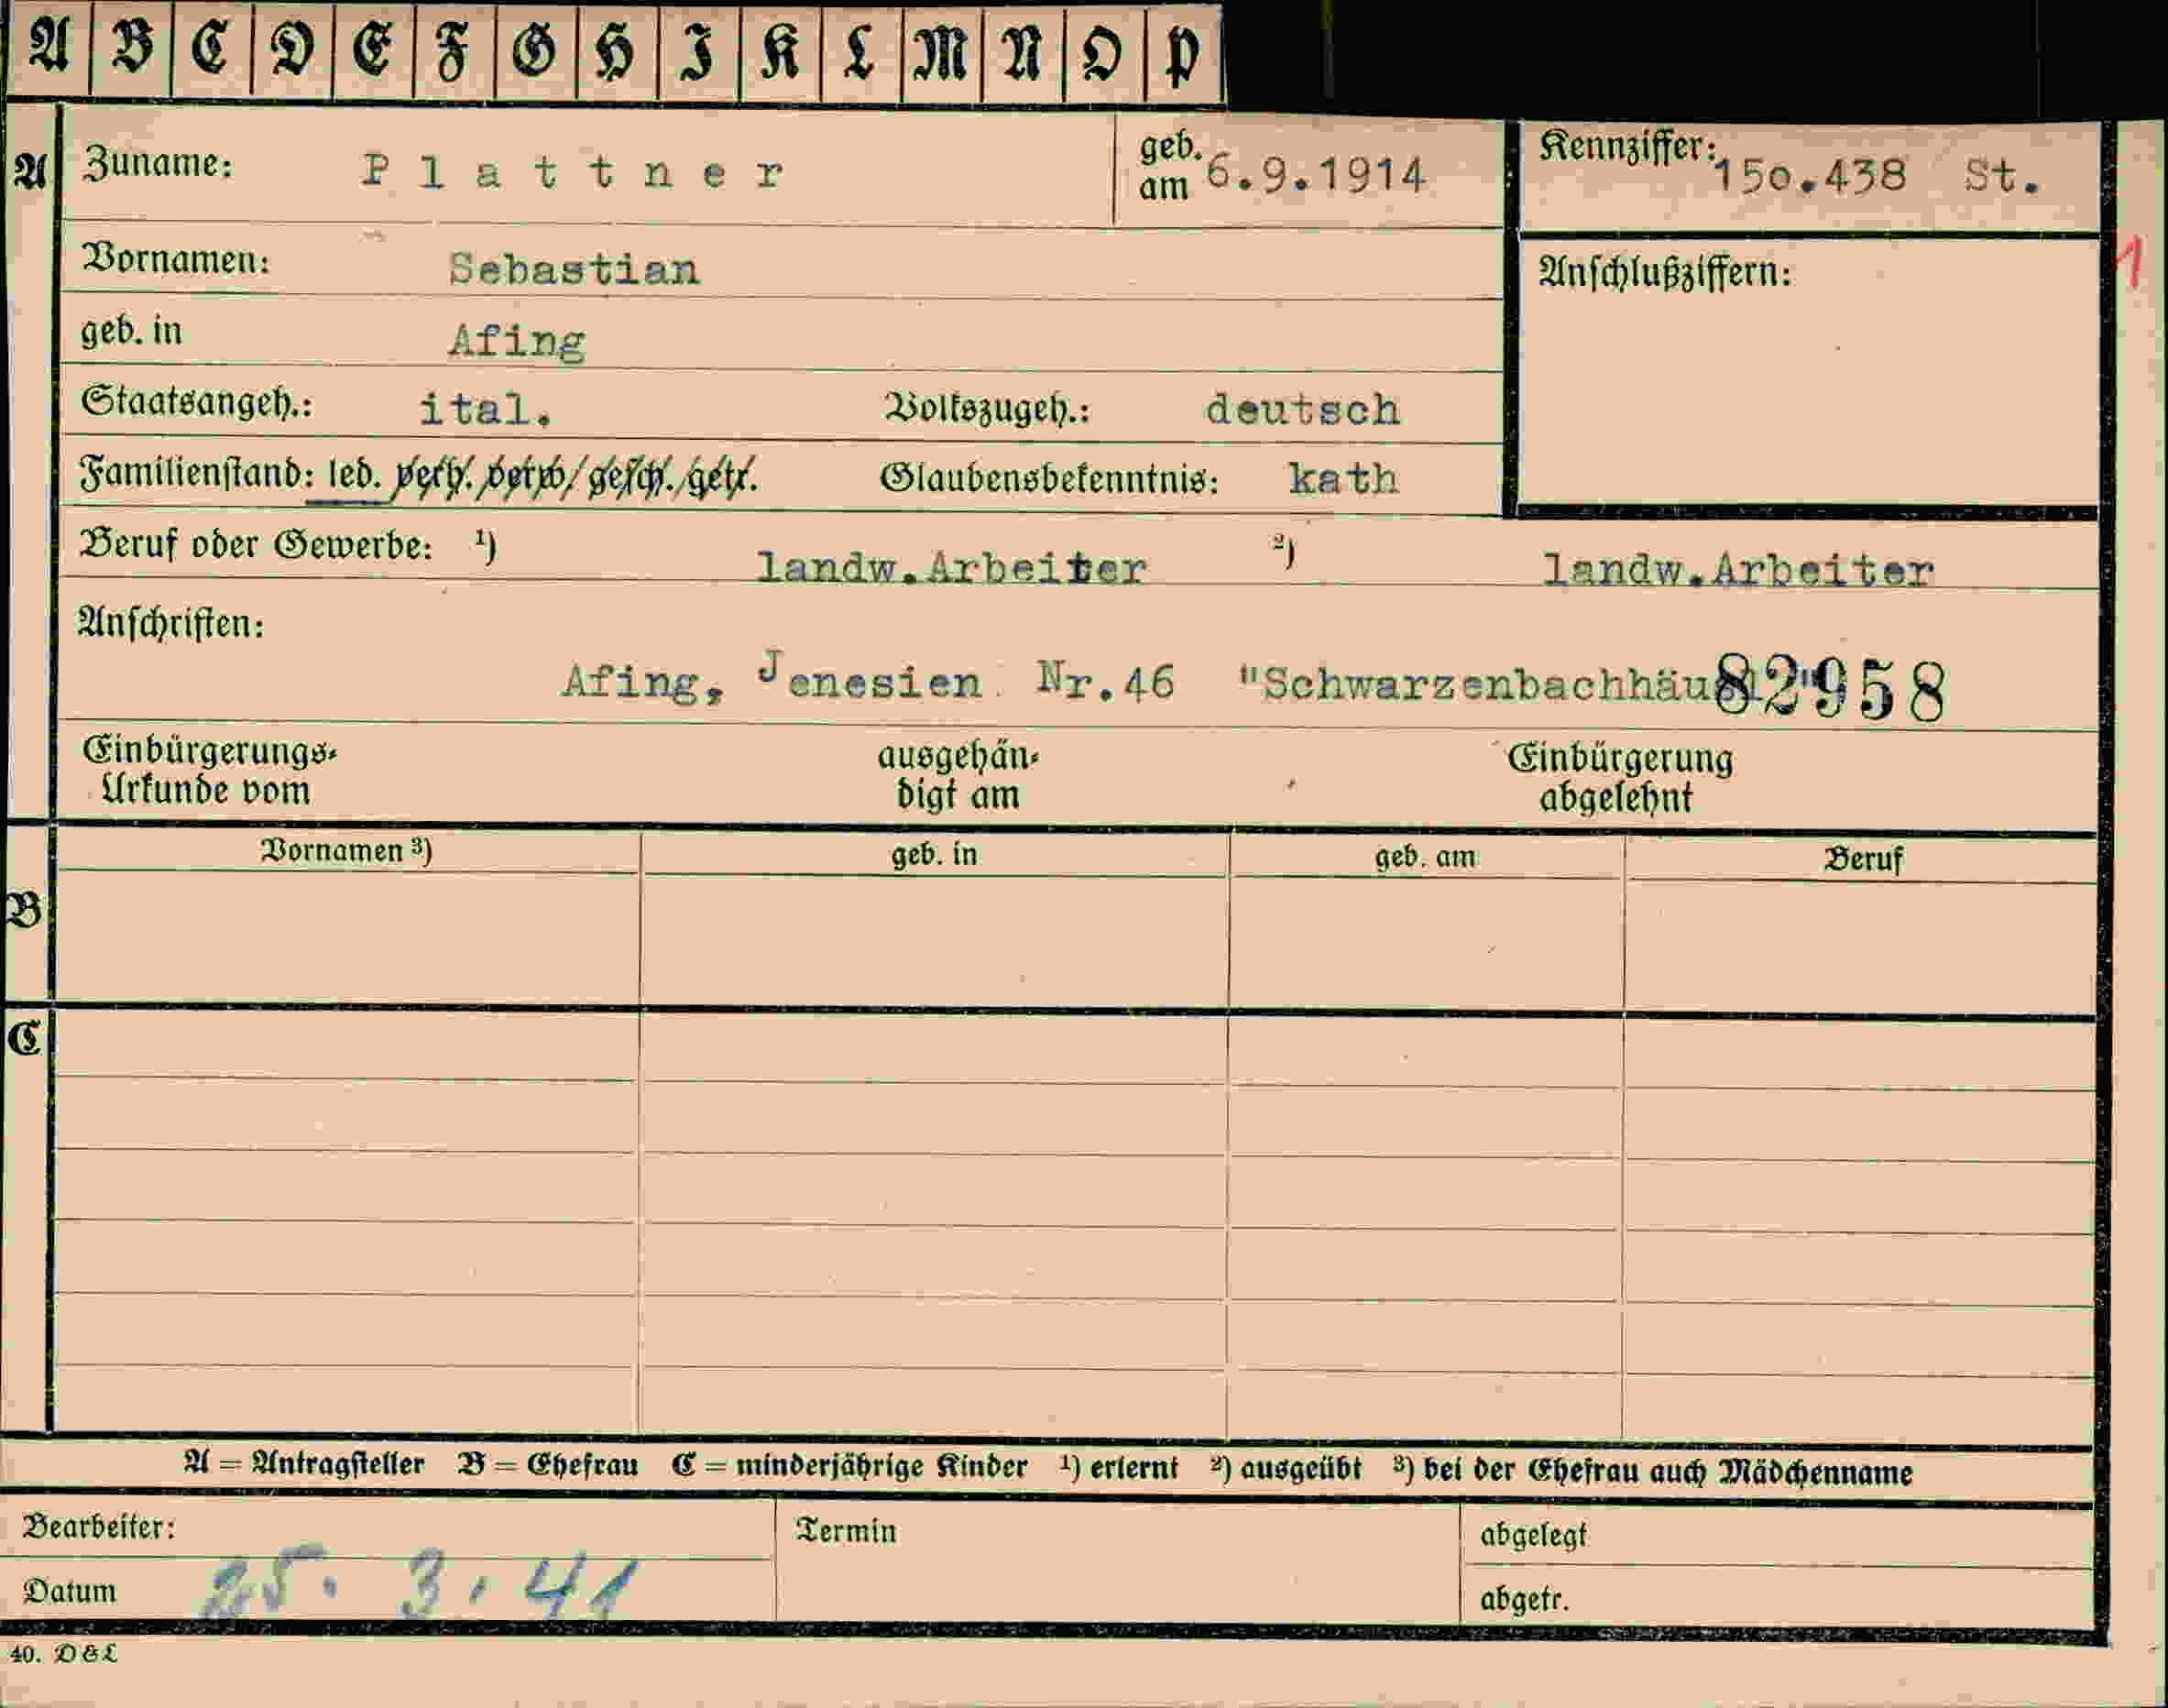 A B C D E F G H I K L M N O P
A Zuname: Plattner geb. am 6.9.1914 Kennziffer: 15o.438 St.
1
Vornamen: Sebastian Anschlußziffern:
geb. in Afing
Staatsangeh.: ital. Volkszugeh.: deutsch
Familienstand: led. verh. verw. gesch. getr. Glaubensbekenntnis: kath
Beruf oder Gewerbe: 1) landw.Arbeiter 2) landw.Arbeiter
Anschriften:
Afing, Jenesien Nr.46 "Schwarzenbachhäu 82958
Einbürgerungs- ausgehän- Einbürgerung
Urkunde vom digt am abgelehnt
Vornamen 3) geb. in geb. am Beruf
B
C
A = Antragsteller B = Ehefrau C = minderjährige Kinder 1) erlernt 2) ausgeübt 3) bei der Ehefrau auch Mädchenname
Bearbeiter: Termin abgelegt
Datum 25. 3. 41 abgetr.
40. D&L